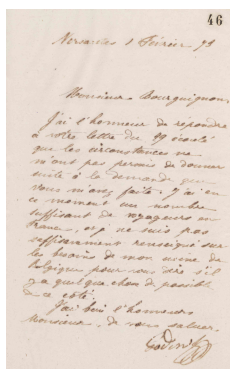 46
Versailles 1 Février 73
Monsieur Bourguignon,
J'ai l'honneur de répondre
à votre lettre du 29 écoulé
que les circonstances ne
m'ont pas permis de donner
suite à la demande que
vous m'avez faite. J'ai en
ce moment un nombre
suffisant de voyageurs en
France, et je ne suis pas
suffisamment renseigné sur
les besoins de mon usine de
Belgique pour vous dire s'il
y a quelque chose de possible
de ce côté.
J'ai bien l'honneur
Monsieur, de vous saluer.
Godin